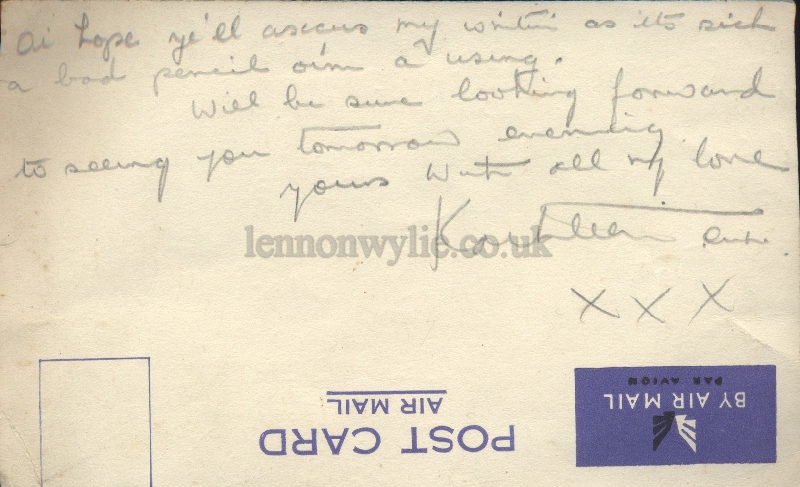 Oi hope ye'll ascus my writin as its sich
a bad pencil oim a using.
Will be sure looking forward
to seeing you tomorrow evening
yours With all my love
Kathleen
X X X
lennonwylie.co.uk
BY AIR MAIL
PAR AVION
POST CARD
AIR MAIL